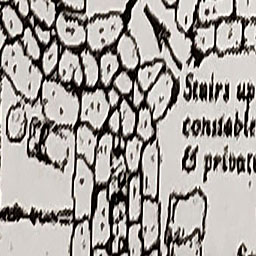 Stairs up
constable
& private